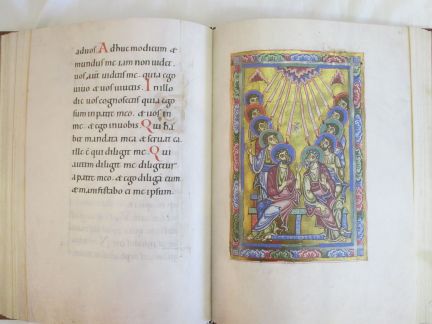 aduos. Adhuc modicum &
mundus me iam non uidet.
uos aut uidetis me. quia ego
uiuo & uos uiuetis. In illo
die uos cognoscetis quia ego
sum in patre meo. & uos in
me. & ego in uobis. Qui ha
bet mandata mea & seruat ea.
ille e qui diligit me. Qui
autem diligit me diligetur
a patre meo. & ego diligā eum
& manifestabo ei me ipsum.